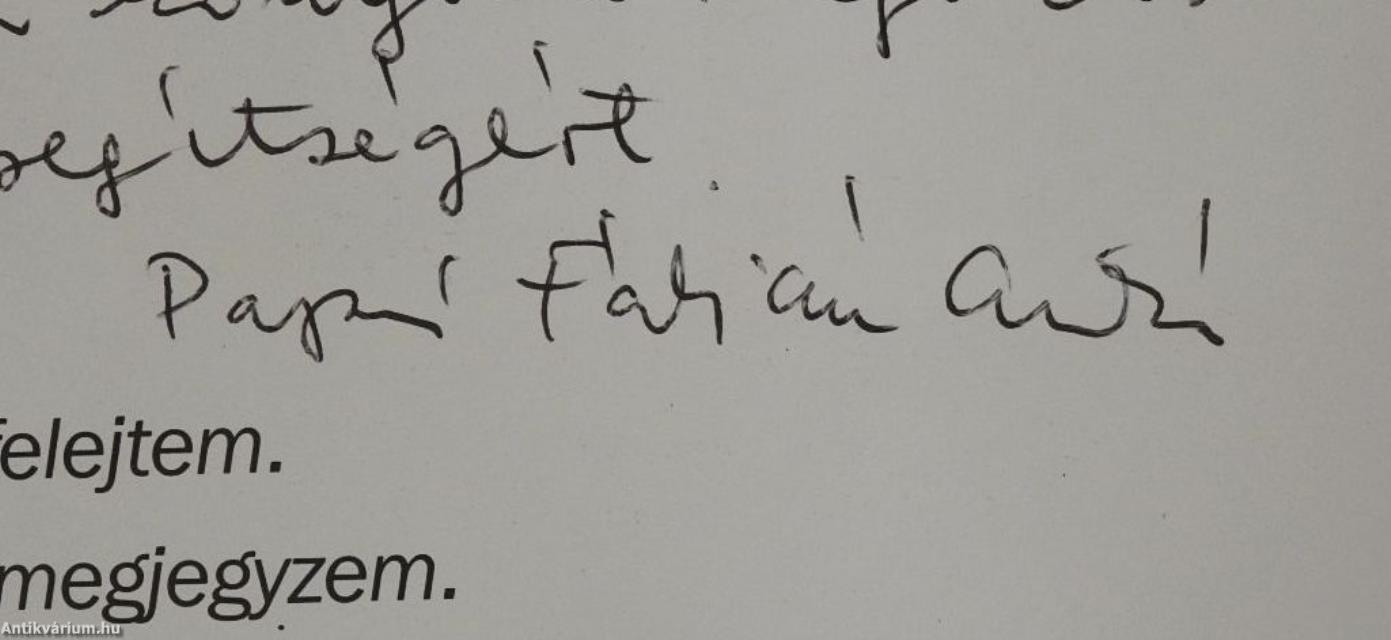 segítségért
Papné Fábián Anikó
felejtem.
megjegyzem.
Antikvárium.hu